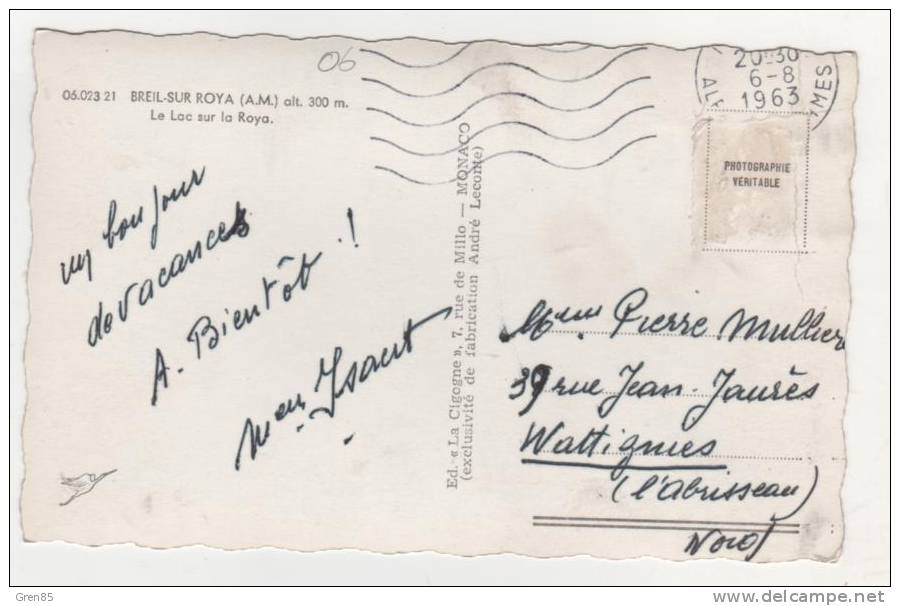 06
05.023 21 BREIL-SUR ROYA (A.M.) alt. 300 m.
Le Lac sur la Roya.
20H30
6-8
1963
AL
MES
PHOTOGRAPHIE
VÉRITABLE
un bonjour
de vacances
A. Bientôt !
Ed. « La Cigogne », 7, rue de Millo — MONACO
(exclusivité de fabrication André Leconte)
Mme Pierre Mullier
39 rue Jean-Jaurès
Wattignies
(l'abrisseau)
Nord
Gren85
www.delcampe.net